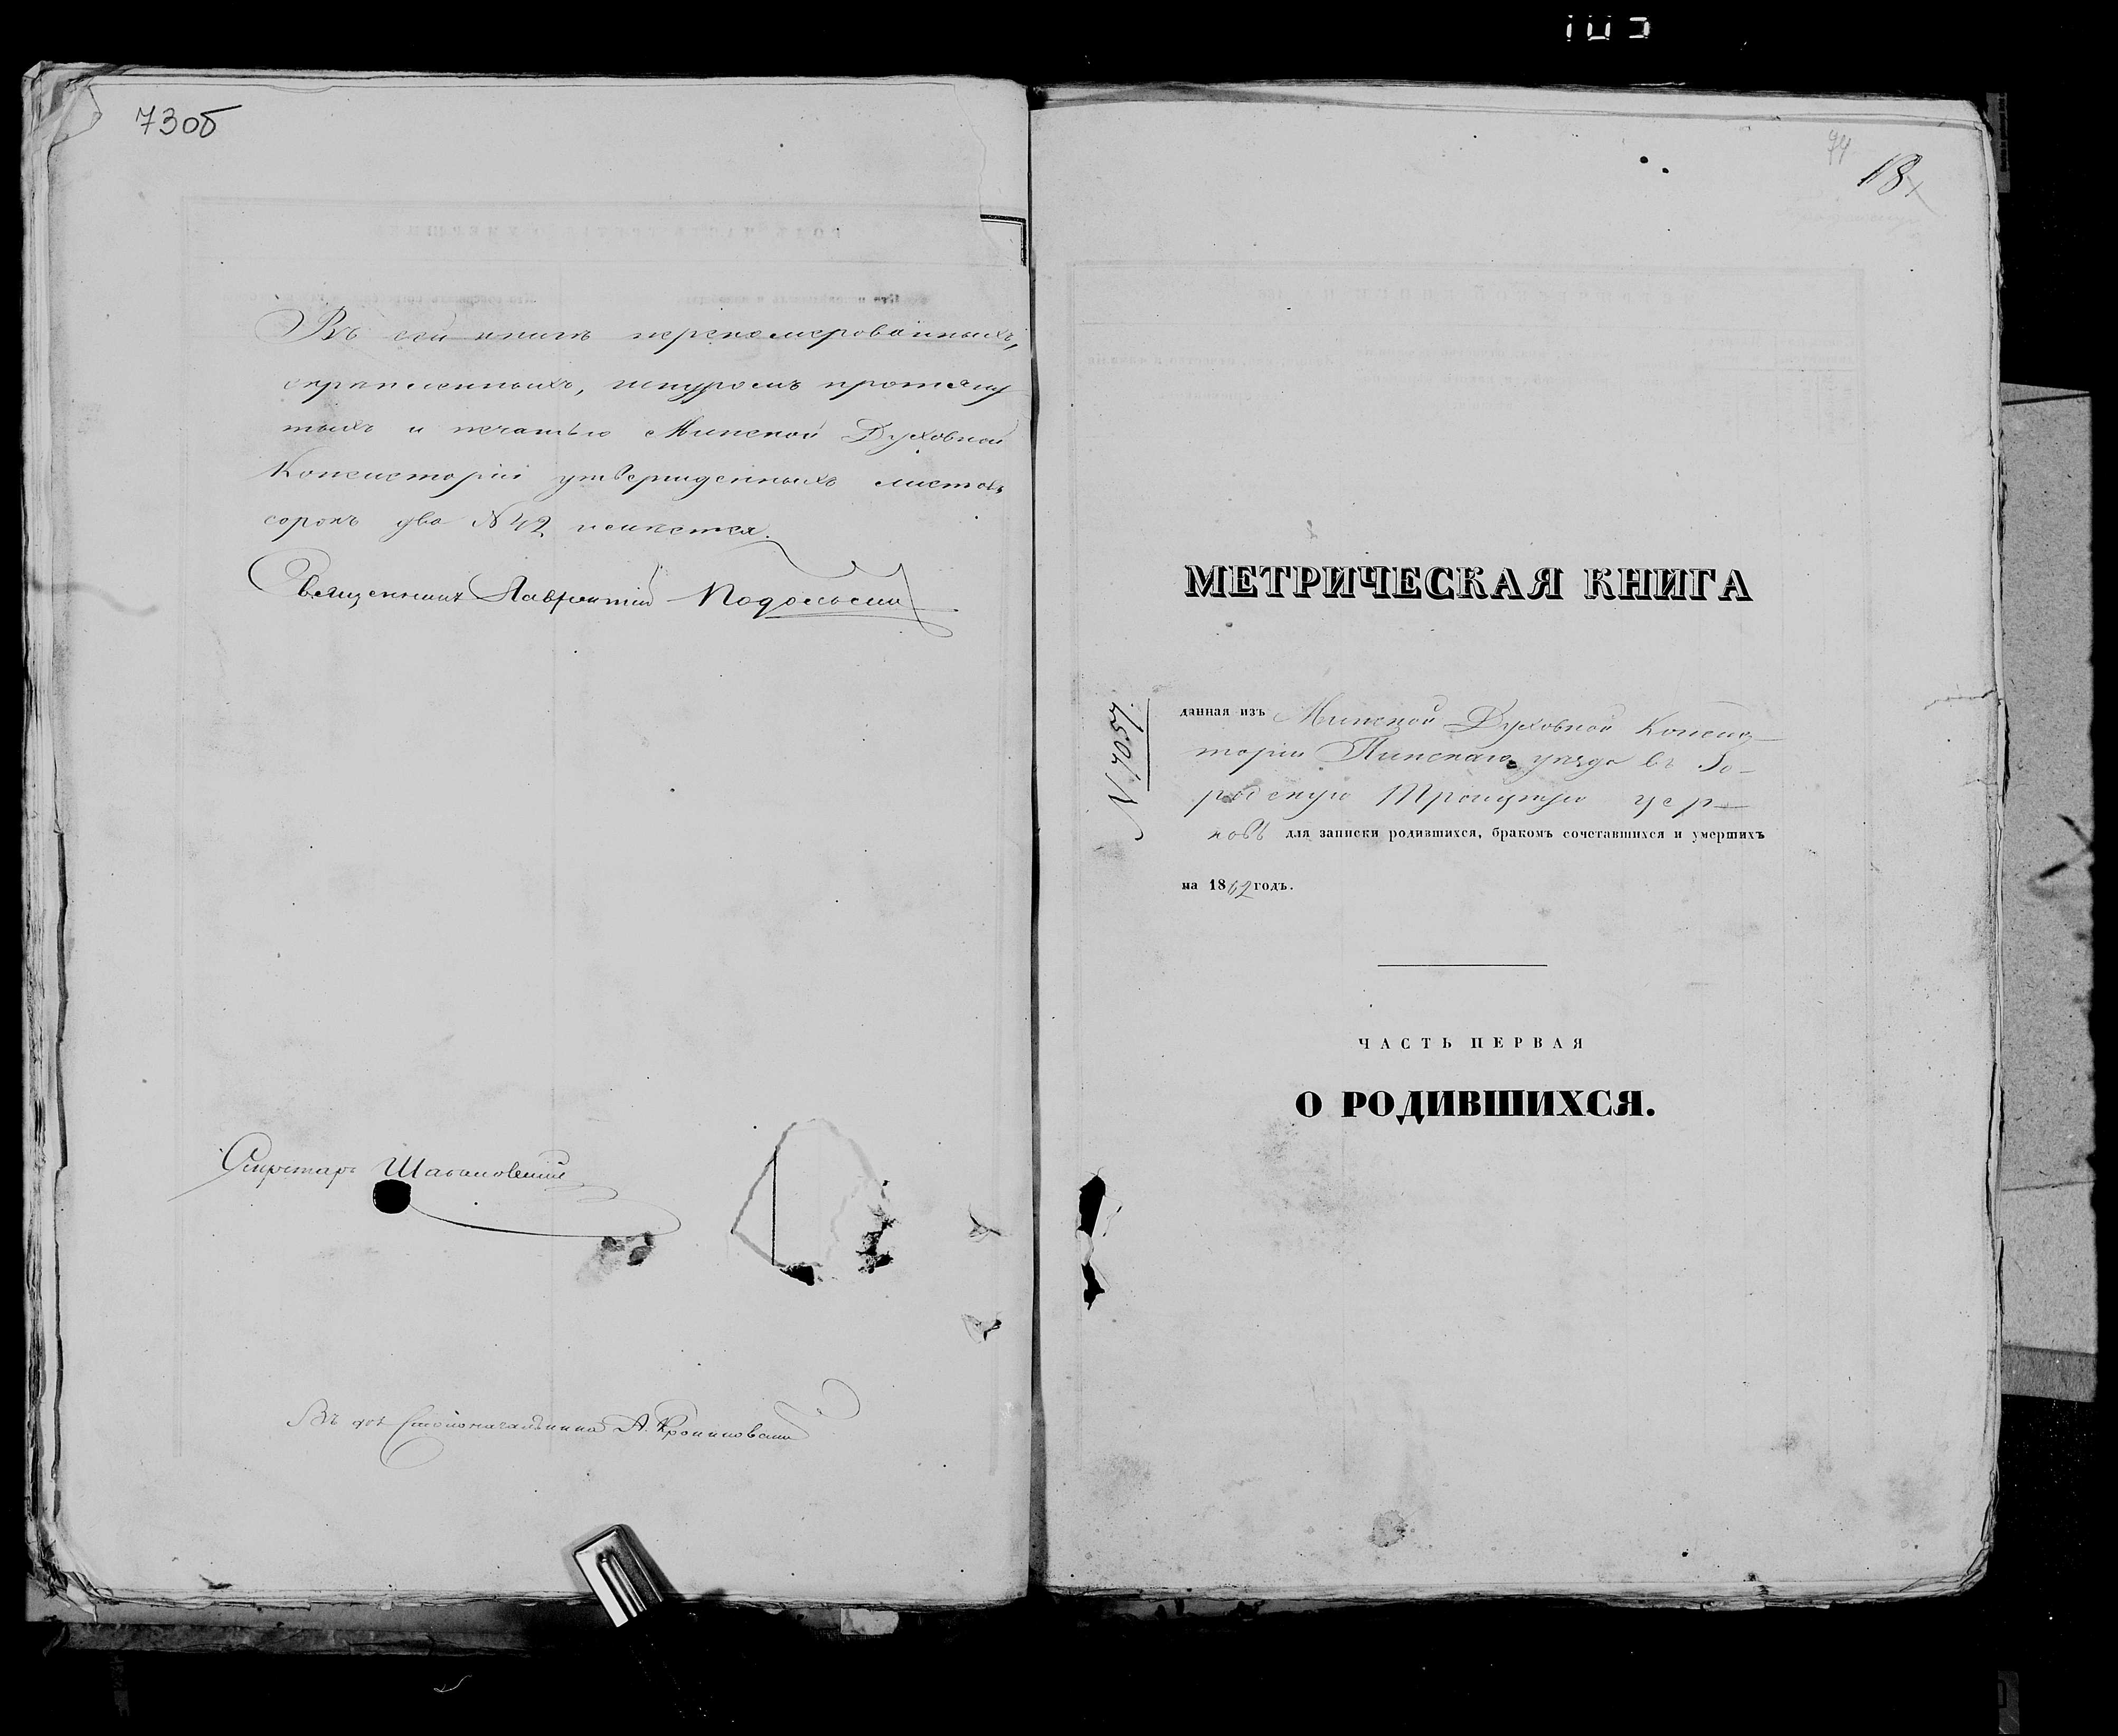 73об
Въ сей книгѣ перенамерованныхъ,
скрепленныхъ, шнуромъ протяну
тыхъ и печатью Минской Духовной
Консисторіи утвержденныхъ листовъ
сорокъ два № 42 имѣется.
Священникъ Лаврентій Подольский
Секретарь
Въ дол. Столоначальника А.
74
18
МЕТРИЧЕСКАЯ КНИГА
№ 7057.
данная изъ Минской Духовной Консис
торіи Пинскаго уѣзда въ Го-
родскую Троицкую цер-
ковь для записки родившихся, бракомъ сочетавшихся и умершихъ
на 1862 годъ.
ЧАСТЬ ПЕРВАЯ
О РОДИВШИХСЯ.